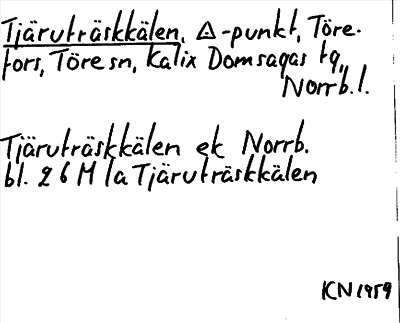 Tjäruträskkälen, △-punkt, Töre-
fors, Töre sn, Kalix Domsagas tg,
Norrb. l.
Tjäruträskkälen ek Norrb.
bl. 26 M 1a Tjäruträskkälen
KN 1959